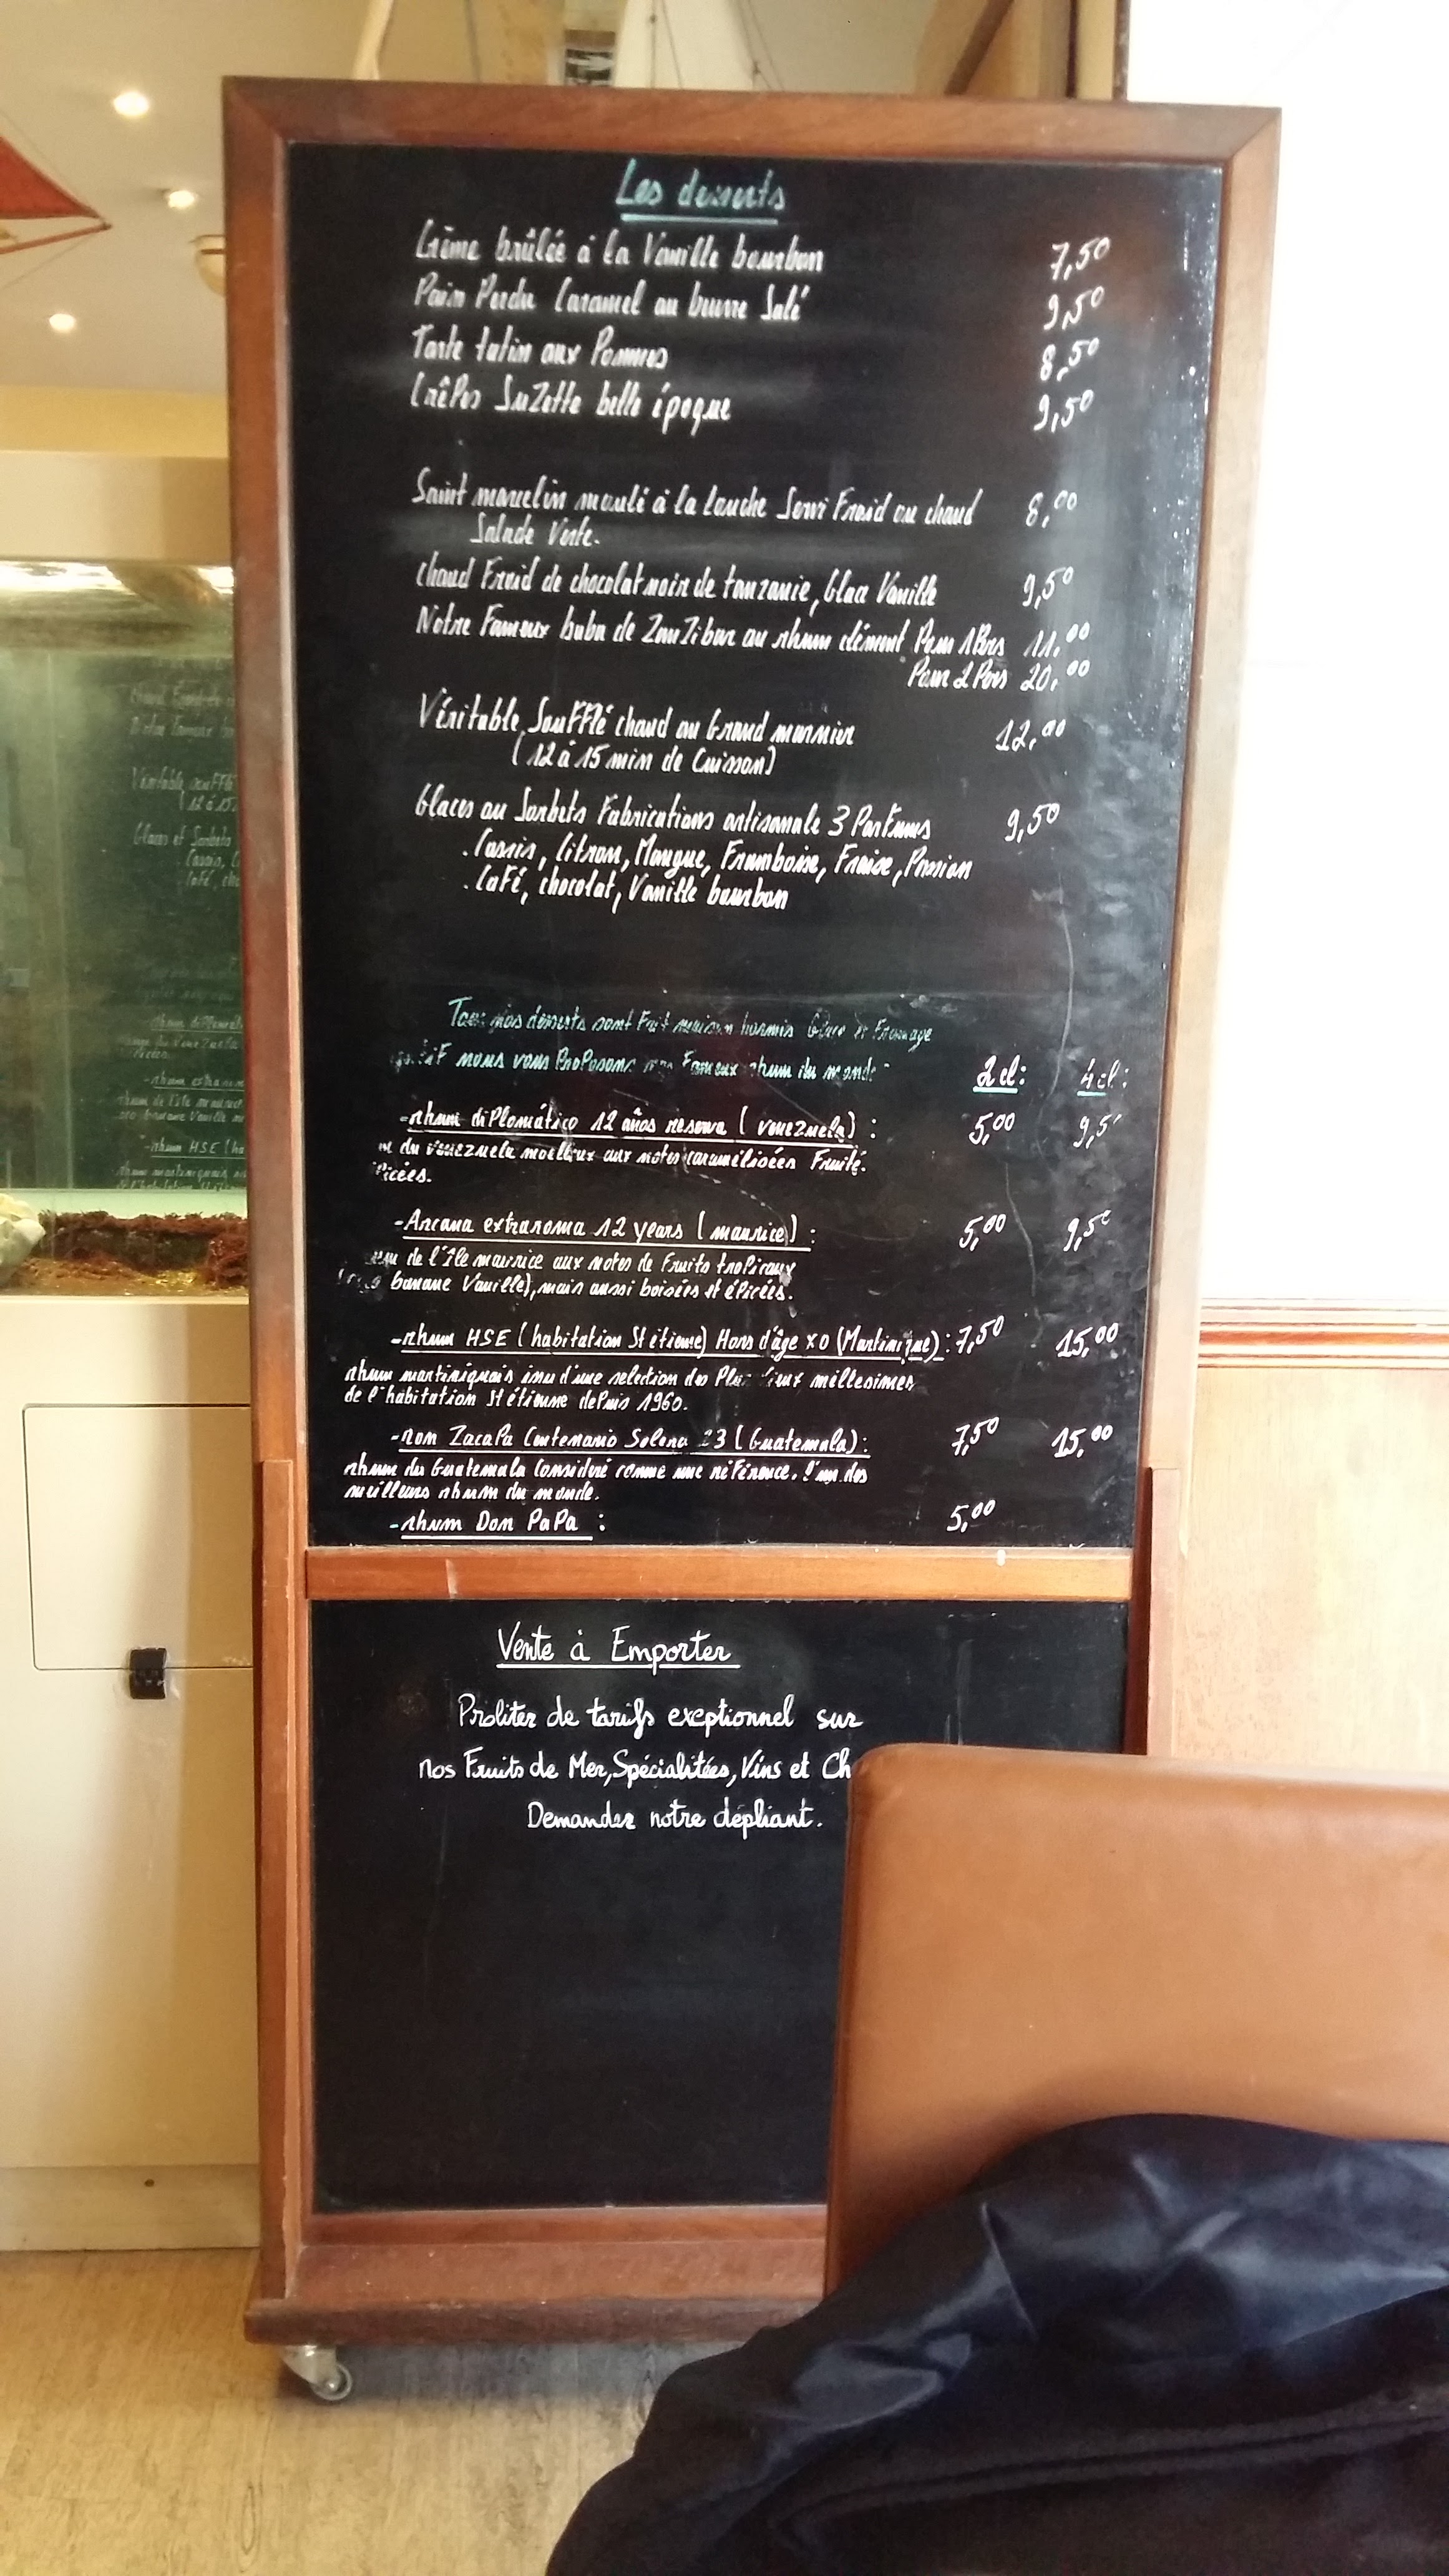 Les desserts
Crème brûlée à la Vanille bourbon 7,50
Pain Perdu Caramel au beurre Salé 9,50
Tarte tatin aux Pommes 8,50
CrêPes SuZette belle époque 9,50
Saint marcelin moulé à la louche Servi Froid ou chaud 8,00
Salade Verte.
chaud Froid de chocolat noir de tanzanie, Glace Vanille 9,50
Notre Fameux baba de ZanZibar au rhum clément Pour 1 Pers 11,00
Pour 2 Pers 20,00
Véritable SouFFlé chaud au Grand marnier 12,00
(12 à 15 min de Cuisson)
Glaces ou Sorbets Fabrications artisanale 3 ParFums 9,50
. Cassis, Citron, Mangue, Framboise, Fraise, Passion
. CaFé, chocolat, Vanille bourbon
Tous nos desserts sont Fait maison hormis Glace et Fromage
nous vous ProPosons Fameux rhum du monde 2 cl: 4 cl:
-rhum diPlomático 12 años reserva (venezuela) : 5,00 9,5
du venezuela moelleux aux notes caramélisées Fruité.
-Arcana extraroma 12 years (maurice) : 5,00 9,50
de l'île maurice aux notes de Fruits troPicaux
banane Vanille), mais aussi boisées et éPicées.
-rhum HSE (habitation St étienne) Hors d'âge XO (Martinique) : 7,50 15,00
rhum martiniquais issu d'une selection des Plus vieux millesimes
de l'habitation St étienne dePuis 1960.
-ron ZacaPa Centenario Solera 23 (Guatemala) : 7,50 15,00
rhum du Guatemala Consideré comme une réFérence. l'un des
meilleurs rhum du monde.
-rhum Don PaPa : 5,00
Vente à Emporter
Profiter de tarifs exeptionnel sur
nos Fruits de Mer, Spécialitées, Vins et Ch
Demander notre dépliant.